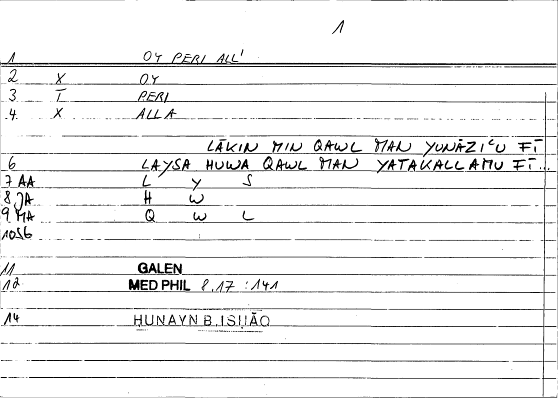 1
1 OY PERI ALL'
2 X OY
3 I PERI
4 X ALLA
LĀKIN MIN QAWL MAN YUNĀZIʿU FĪ
6 LAYSA HUWA QAWL MAN YATAKALLAMU FĪ...
7 AA L Y S
8 JA H W
9 MA Q W L
10 56
11 GALEN
12 MED PHIL 8,17 :141
14 HUNAYN B. ISḤĀQ